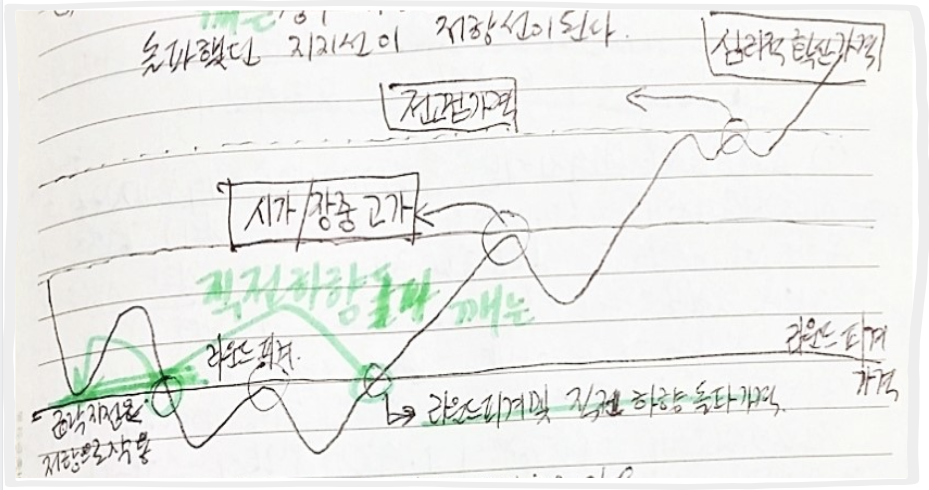 깨는
돌파했던 지지선이 저항선이된다.
심리적 확산가격
전고점가격
시가/장중고가
직전하향돌파 깨는
라운드피겨
라운드피겨
가격
라운드피겨및 직전 하향돌파가격
저항으로작용